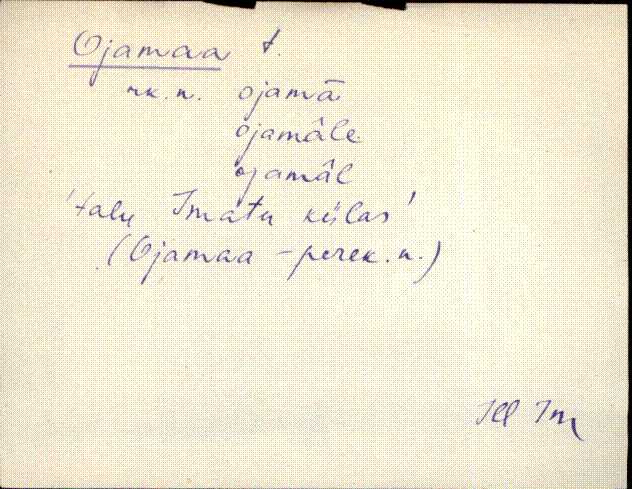 Ojamaa t.
rk.n. ojamā
ojamâle
ojamâl
'talu Imatu külas'
(Ojamaa - perek.n.)
Ill Im